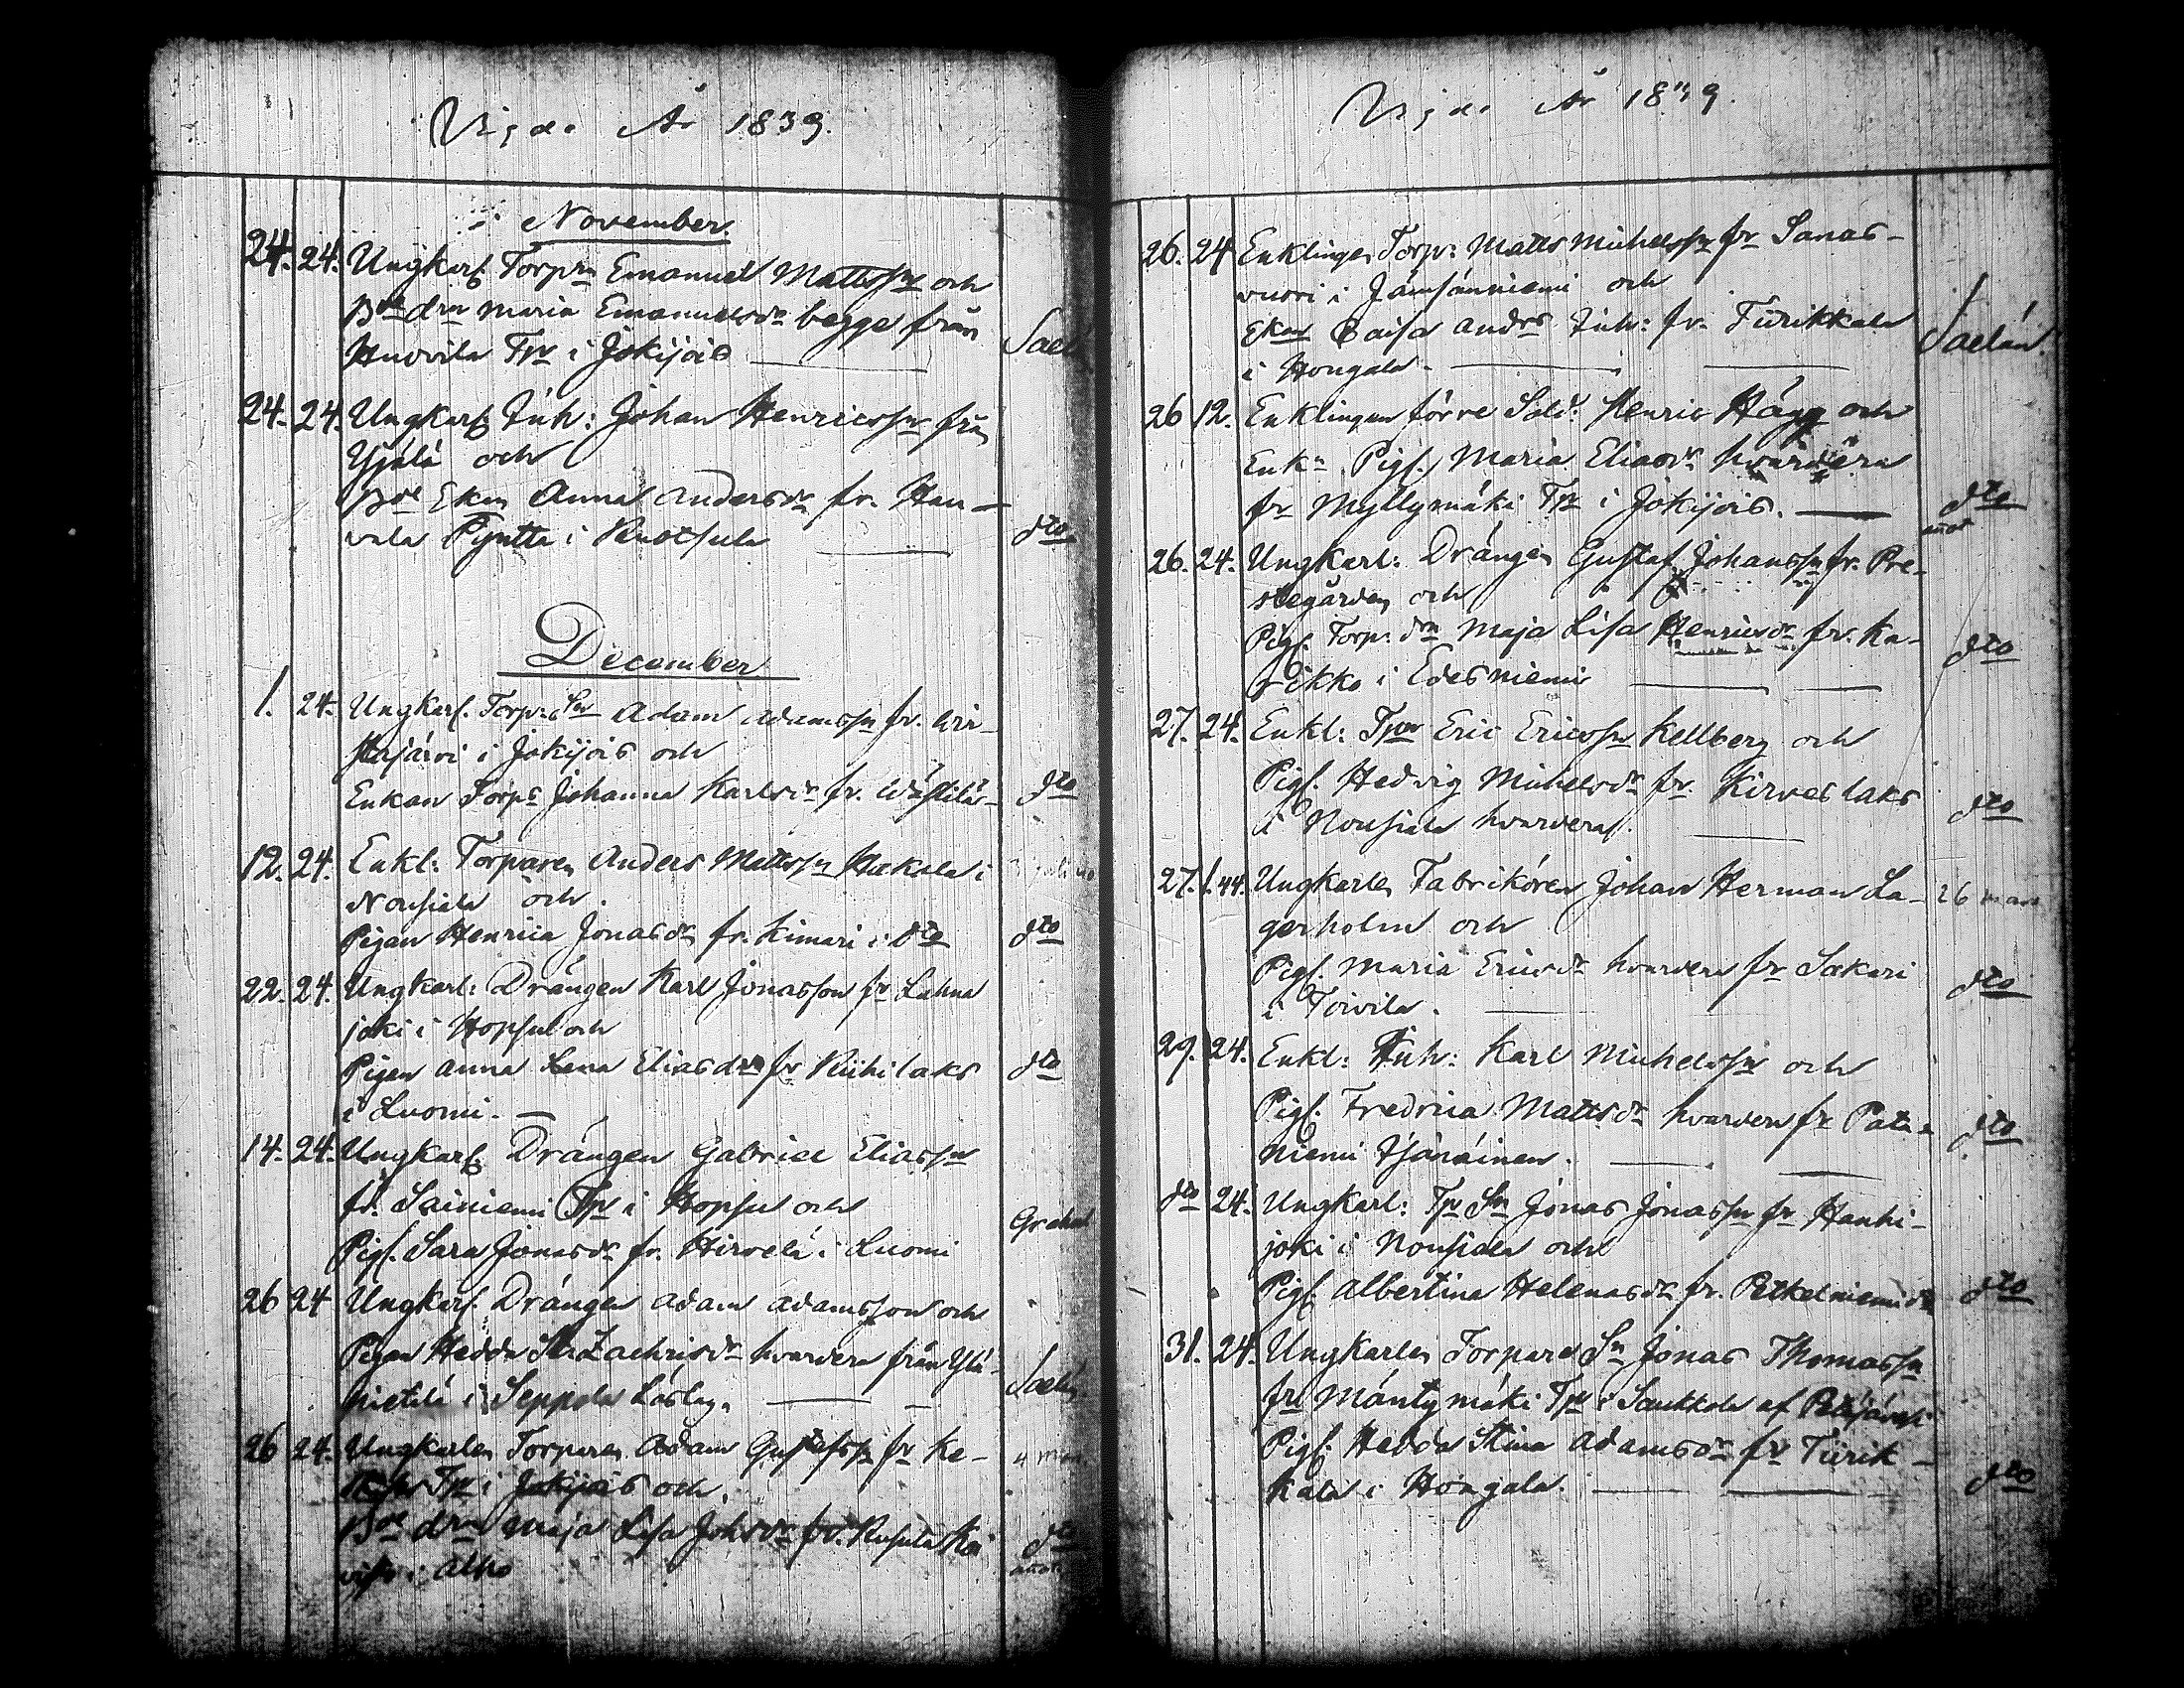 Vigde År 1839.
November.
24. 24. Ungkarl. Torprn Emanuel Mattssn och
Bde drn Maria Emanuelsdr begge från
Huovila Trp i Jokijois Sael
24. 24. Ungkarl. Inh: Johan Henricssn från
Yjälä och
Bde Ekan Anna Andersdr fr. Hau-
vala Pyntti i Ruotsula dto
December
1. 24. Ungkarl. Torp: Sn Adam Adamssn fr. Wir-
tajärvi i Jokijois och
Enkan Torps Johanna Karlsdr fr. dto
12. 24. Enkl: Torparen Anders Mattssn Hakala i
Nousiala och
Pigan Henrica Jonasdr fr. Kimari i dto dto
22. 24. Ungkarl: Drängen Karl Jonasson fr Lahna
joki i Hopsu och
Pigan Anna Lena Eliasdr fr Riihilaks
i Luomi. dto
14. 24. Ungkarl. Drängen Gabriel Eliassn
fr. Sainiemi Trp i Hopsu och
Pigl. Sara Jonasdr fr. Hirvelä i Luomi
26 24 Ungkarl. Drängen Adam Adamsson och
Pigan Hedda Zachrisdr hvardera från Yli-
nietilä i Seppola
26 24. Ungkarlen Torparen Adam Gustafssn fr Ke-
Trp i Jokijois och
Bde drn Maja Lisa Johsdr fr. Rusula Koi
visto i Alho dto
Vigde År 1839.
26. 24 Enklingen Torp: Matts Michelssn fr Sanas-
vuori i Jämsänniemi och
Ekan Caisa Andrs Inh: fr. Tiirikkala
i Hongala. Saelán.
26 12. Enklingen förre Sold: Henric Hägg och
Enkn Pigl. Maria Eliasdr hvardera
fr Myllymäki Trp i Jokijois. dto
26. 24. Ungkarl: Drängen Gustaf Johanssn fr. Pre-
stegården och
Pigl. Torp: drn Maja Lisa Henricsdr fr. Ka-
rikko i Edesniemi dto
27. 24. Enkl: Tpr Eric Ericssn Kellberg och
Pigl. Hedvig Michelsdr fr. Kirveslaks
i Nousiala hvardera. dto
27. 1.44. Ungkarlen Fabrikören Johan Herman La- 26 mars
gerholm och
Pigl. Maria Ericsdr hvardera fr Sakari
i Toivila. dto
29. 24. Enkl: Inh: Karl Michelssn och
Pigl. Fredrica Mattsdr hvardera fr Pata-
niemi dto
dto 24. Ungkarl: Tpr Sn Jonas Jonassn fr Hanhi-
joki i Nousiala och
Pigl. Albertina Helenasdr fr. Petkelniemi dto
31. 24. Ungkarlen Torpare Sn Jonas Thomassn
fr Mäntymäki Trp i Saukkola af Petäjävesi
Pigl. Hedda Stina Adamsdr fr Tiirik-
kala i Hongala. dto